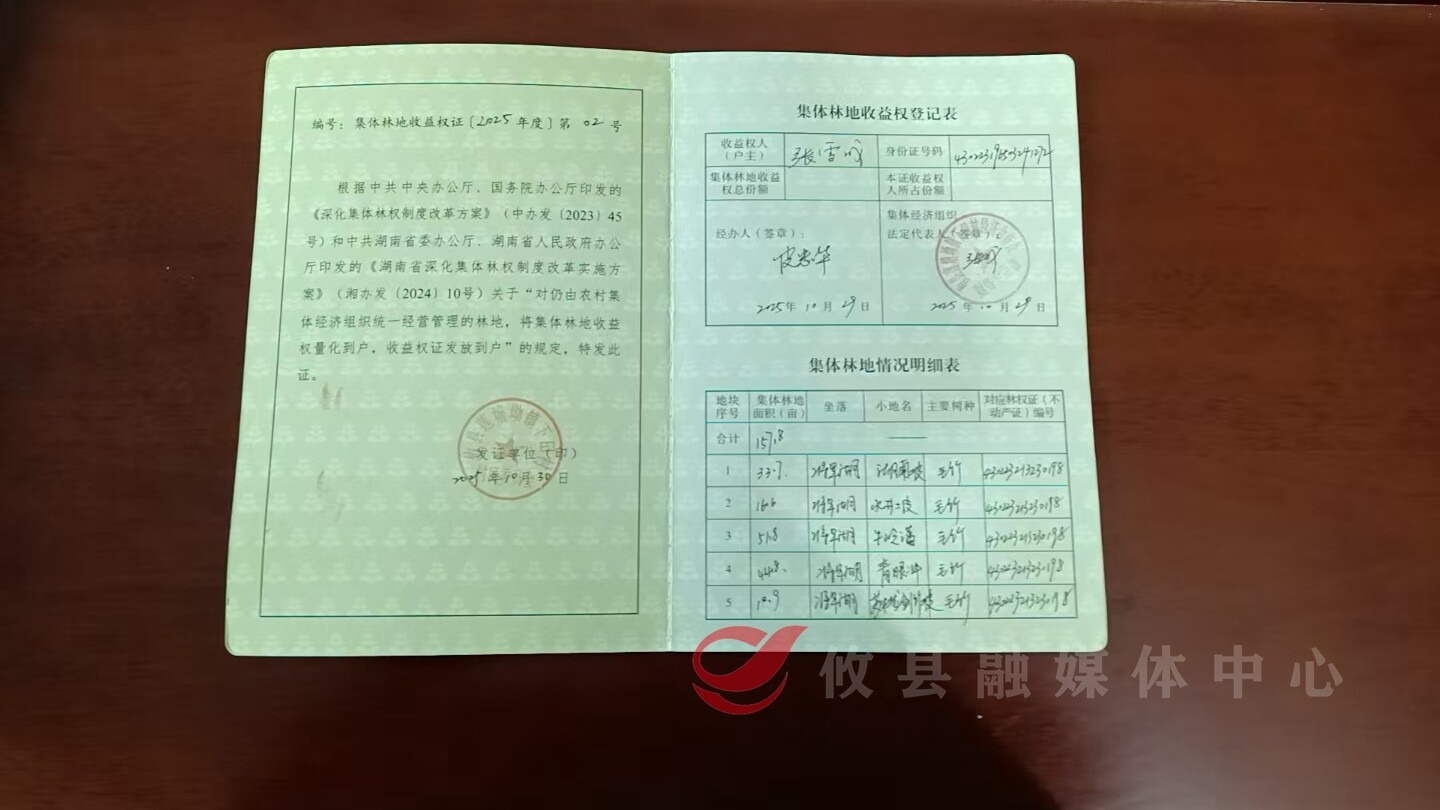 编号：集体林地收益权证〔2025年度〕第 02 号
根据中共中央办公厅、国务院办公厅印发的
《深化集体林权制度改革方案》（中办发〔2023〕45
号）和中共湖南省委办公厅、湖南省人民政府办公
厅印发的《湖南省深化集体林权制度改革实施方
案》（湘办发〔2024〕10号）关于“对仍由农村集
体经济组织统一经营管理的林地，将集体林地收益
权量化到户，收益权证发放到户”的规定，特发此
证。
发证单位（印）
2025年10月30日
集体林地收益权登记表
收益权人（户主） 张雪 身份证号码
集体林地收益权总份额 本证收益权人所占份额
经办人（签章）： 集体经济组织法定代表人（签章）：
2025年10月29日 2025年10月29日
集体林地情况明细表
地块序号 集体林地面积（亩） 坐落 小地名 主要树种 对应林权证（不动产证）编号
合计 157.8 ——
1 33.7 将军湖 毛竹
2 16.6 将军湖 毛竹
3 51.8 将军湖 毛竹
4 44.8 将军湖 毛竹
5 10.9 将军湖 毛竹
攸县融媒体中心